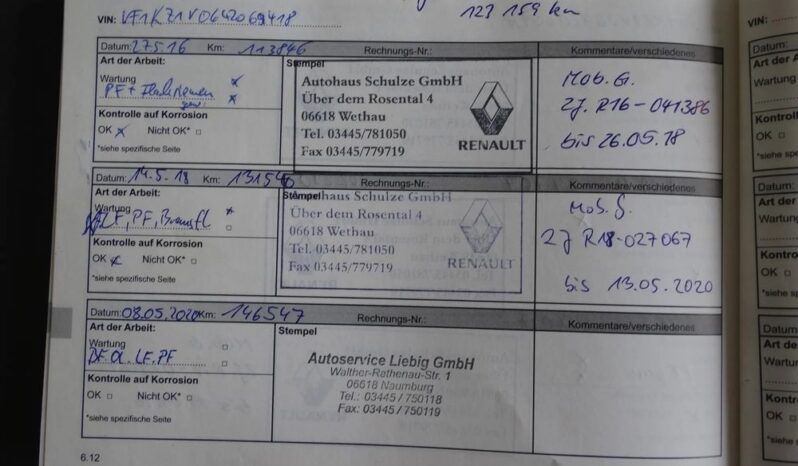 123 159 km
VIN: VF1KZ1V0642069418
VIN:
Datum: 27.5.16 Km: 113846 Rechnungs-Nr.: Kommentare/verschiedenes
Art der Arbeit:
Wartung x
PF + x
Kontrolle auf Korrosion
OK x Nicht OK* □
*siehe spezifische Seite
Stempel
Autohaus Schulze GmbH
Über dem Rosental 4
06618 Wethau
Tel. 03445/781050
Fax 03445/779719
RENAULT
Mob. G.
2J. R16-041386
bis 26.05.18
Datum: 14.5.18 Km: 131540 Rechnungs-Nr.: Kommentare/verschiedenes
Art der Arbeit:
Wartung x
LF, PF, Bremsfl. □
Kontrolle auf Korrosion
OK x Nicht OK* □
*siehe spezifische Seite
Stempel
Autohaus Schulze GmbH
Über dem Rosental 4
06618 Wethau
Tel. 03445/781050
Fax 03445/779719
RENAULT
Mob. G.
2J R18-027067
bis 13.05.2020
Datum: 08.05.2020 Km: 146547 Rechnungs-Nr.: Kommentare/verschiedenes
Art der Arbeit:
Wartung □
BF. ÖL. LF. PF □
Kontrolle auf Korrosion
OK □ Nicht OK* □
*siehe spezifische Seite
Stempel
Autoservice Liebig GmbH
Walther-Rathenau-Str. 1
06618 Naumburg
Tel.: 03445 / 750118
Fax: 03445 / 750119
6.12
Datum:
Art der A
Wartung
Kontroll
OK □
*siehe spe
Datum:
Art der
Wartung
Kontro
OK □
*siehe
Datum:
Art de
Wartun
Kontr
OK □
*siehe